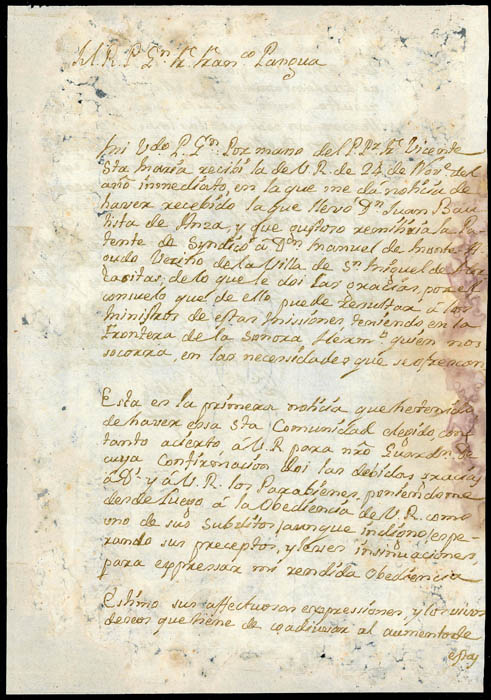 M. R. P. Gn. Fr. Franco Pangua
Mi Vdo P. Gn. Por mano del P. Pr. Fr. Vicente
Sta Maria recivi la de V.R. de 24 de Nove. del
año inmediato, en la que me da noticia de
haver recebido la que llevò Dn. Juan Bau
tista de Anza, y que gustoso remitiria la Pa
tente de Syndico à Dn. Manuel de Monte A
oudo Veriño de la Villa de Sn. Miguel de Hor
casitas, de lo que le doi las gracias, por el
consuelo que de ello puede resultar à los
Ministros de estas Missiones, teniendo en la
Frontera de la Sonora Hermo. quien nos
socorra, en las necesidades que se ofrescan
Esta es la primera noticia que he tenido
de haver essa Sta Comunidad elegido con
tanto acierto à V.R. para nro Guardn. de
cuya Confirmacion doi las debidas gracias
à Ds. y à V.R. los Parabienes, poniendome
desde luego à la Obediencia de V.R. como
uno de sus subditos (aunque indigno) espe
rando sus preceptos, y leves insinuaciones,
para expressar mi rendida Obediencia
Estimo sus affectuosas expressiones, y los vivos
deseos que tiene de coadiuvar al aumento de
estas